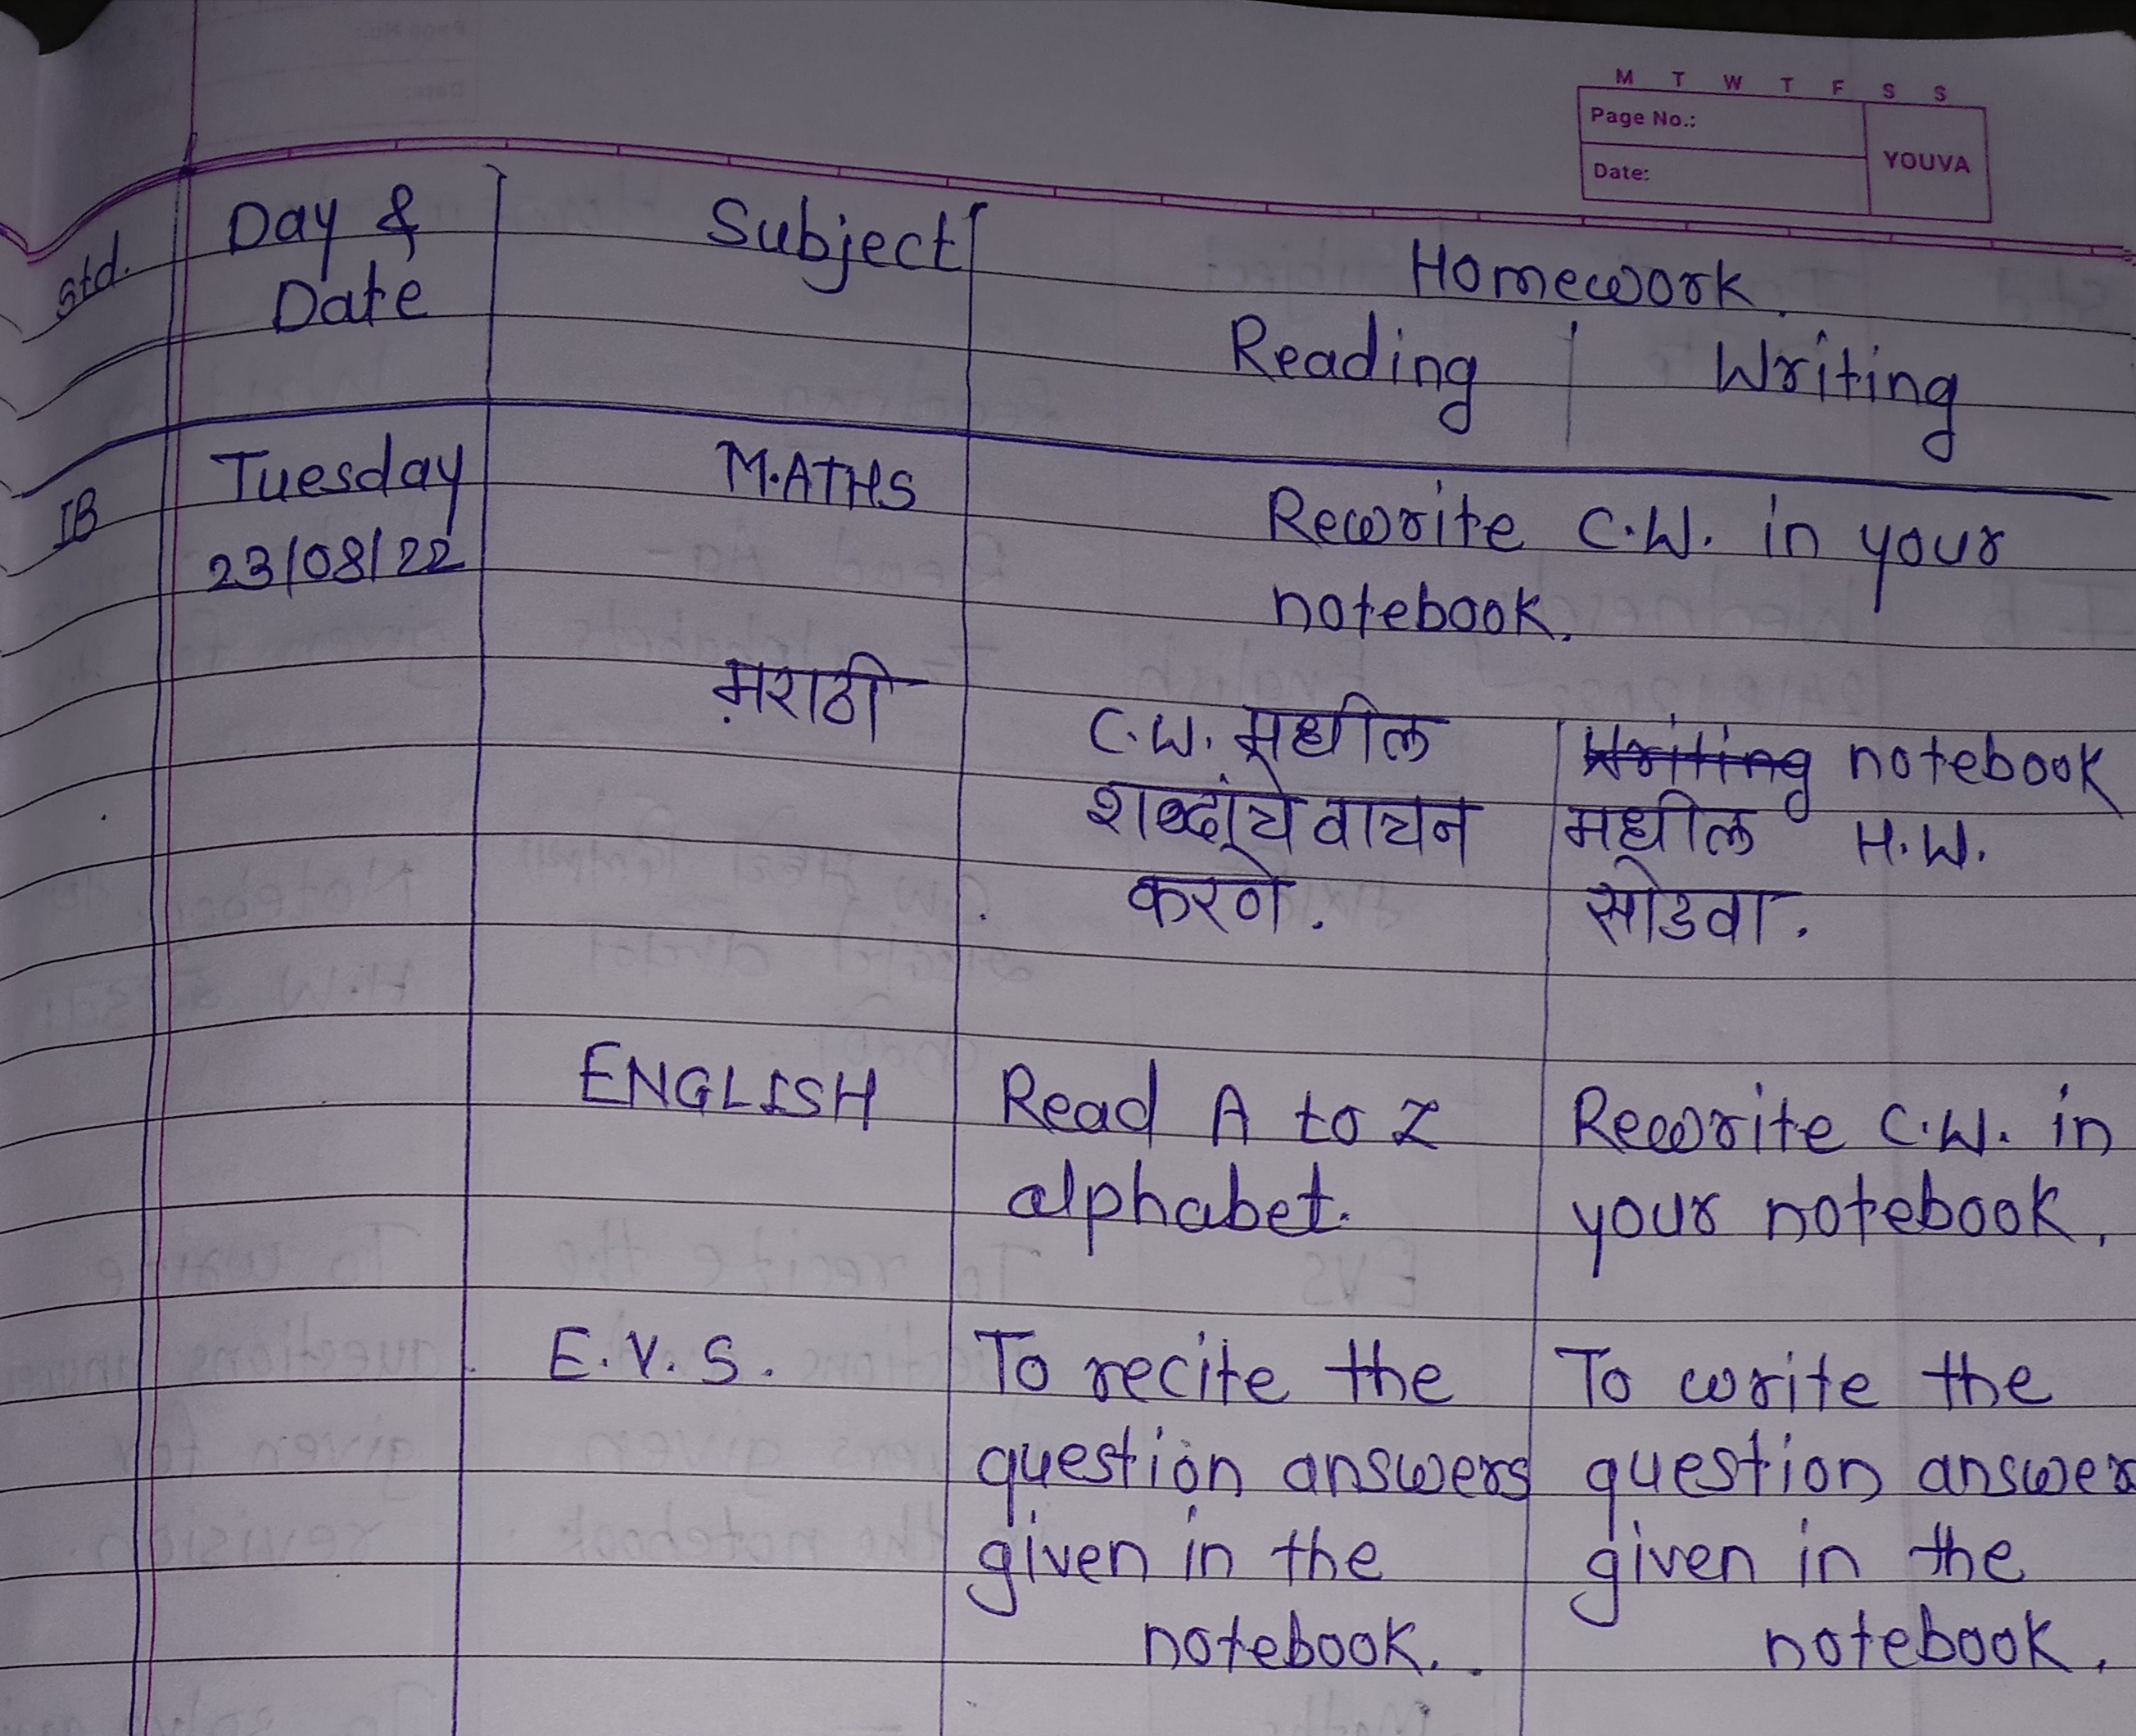 M T W T F S S
Page No.:
YOUVA
Date:
Std. Day & Date Subject Homework
Reading Writing
IB Tuesday M.ATHS Rewrite C.W. in your
23/08/22 notebook.
मराठी C.W. मधील Writing notebook
शब्दांचे वाचन मधील H.W.
करणे. सोडवा.
ENGLISH Read A to Z Rewrite C.W. in
alphabet. your notebook.
E.V.S. To recite the To write the
question answers question answer
given in the given in the
notebook. notebook.